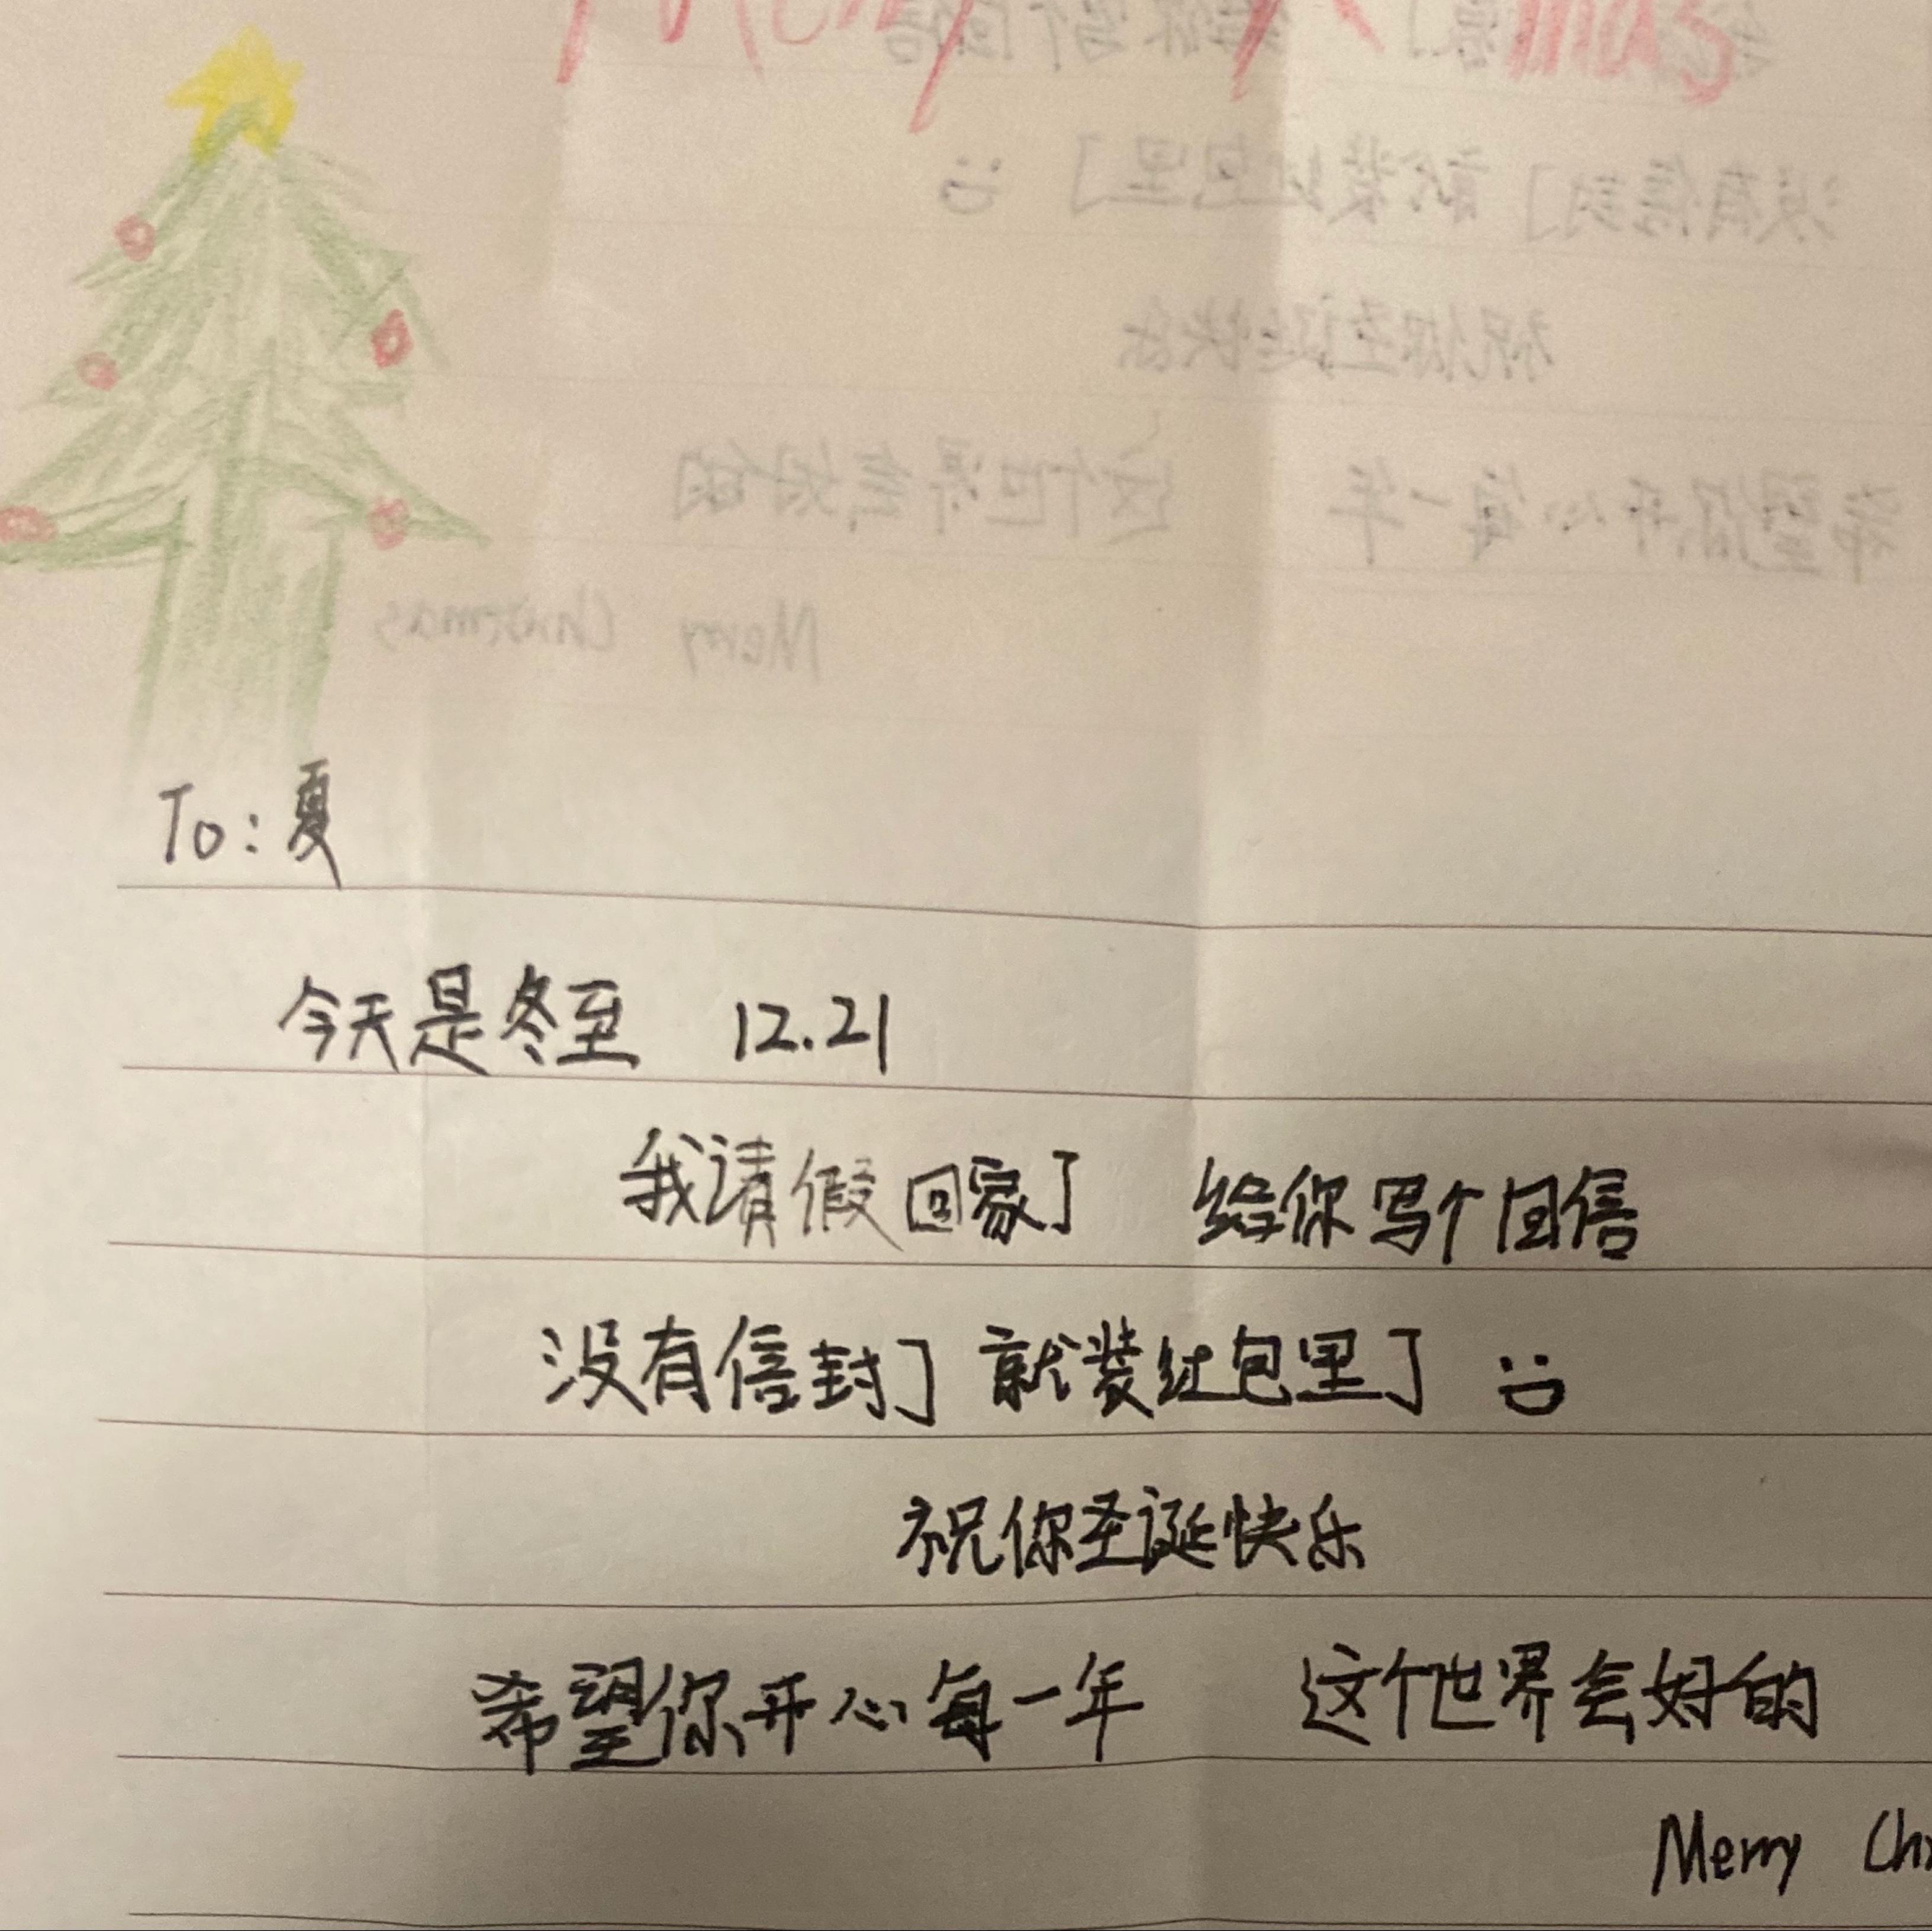 Merry X-mas
To:夏
今天是冬至 12.21
我请假回家了 给你写个回信
没有信封了 就装红包里了 :D
祝你圣诞快乐
希望你开心每一年 这个世界会好的
Merry Chr